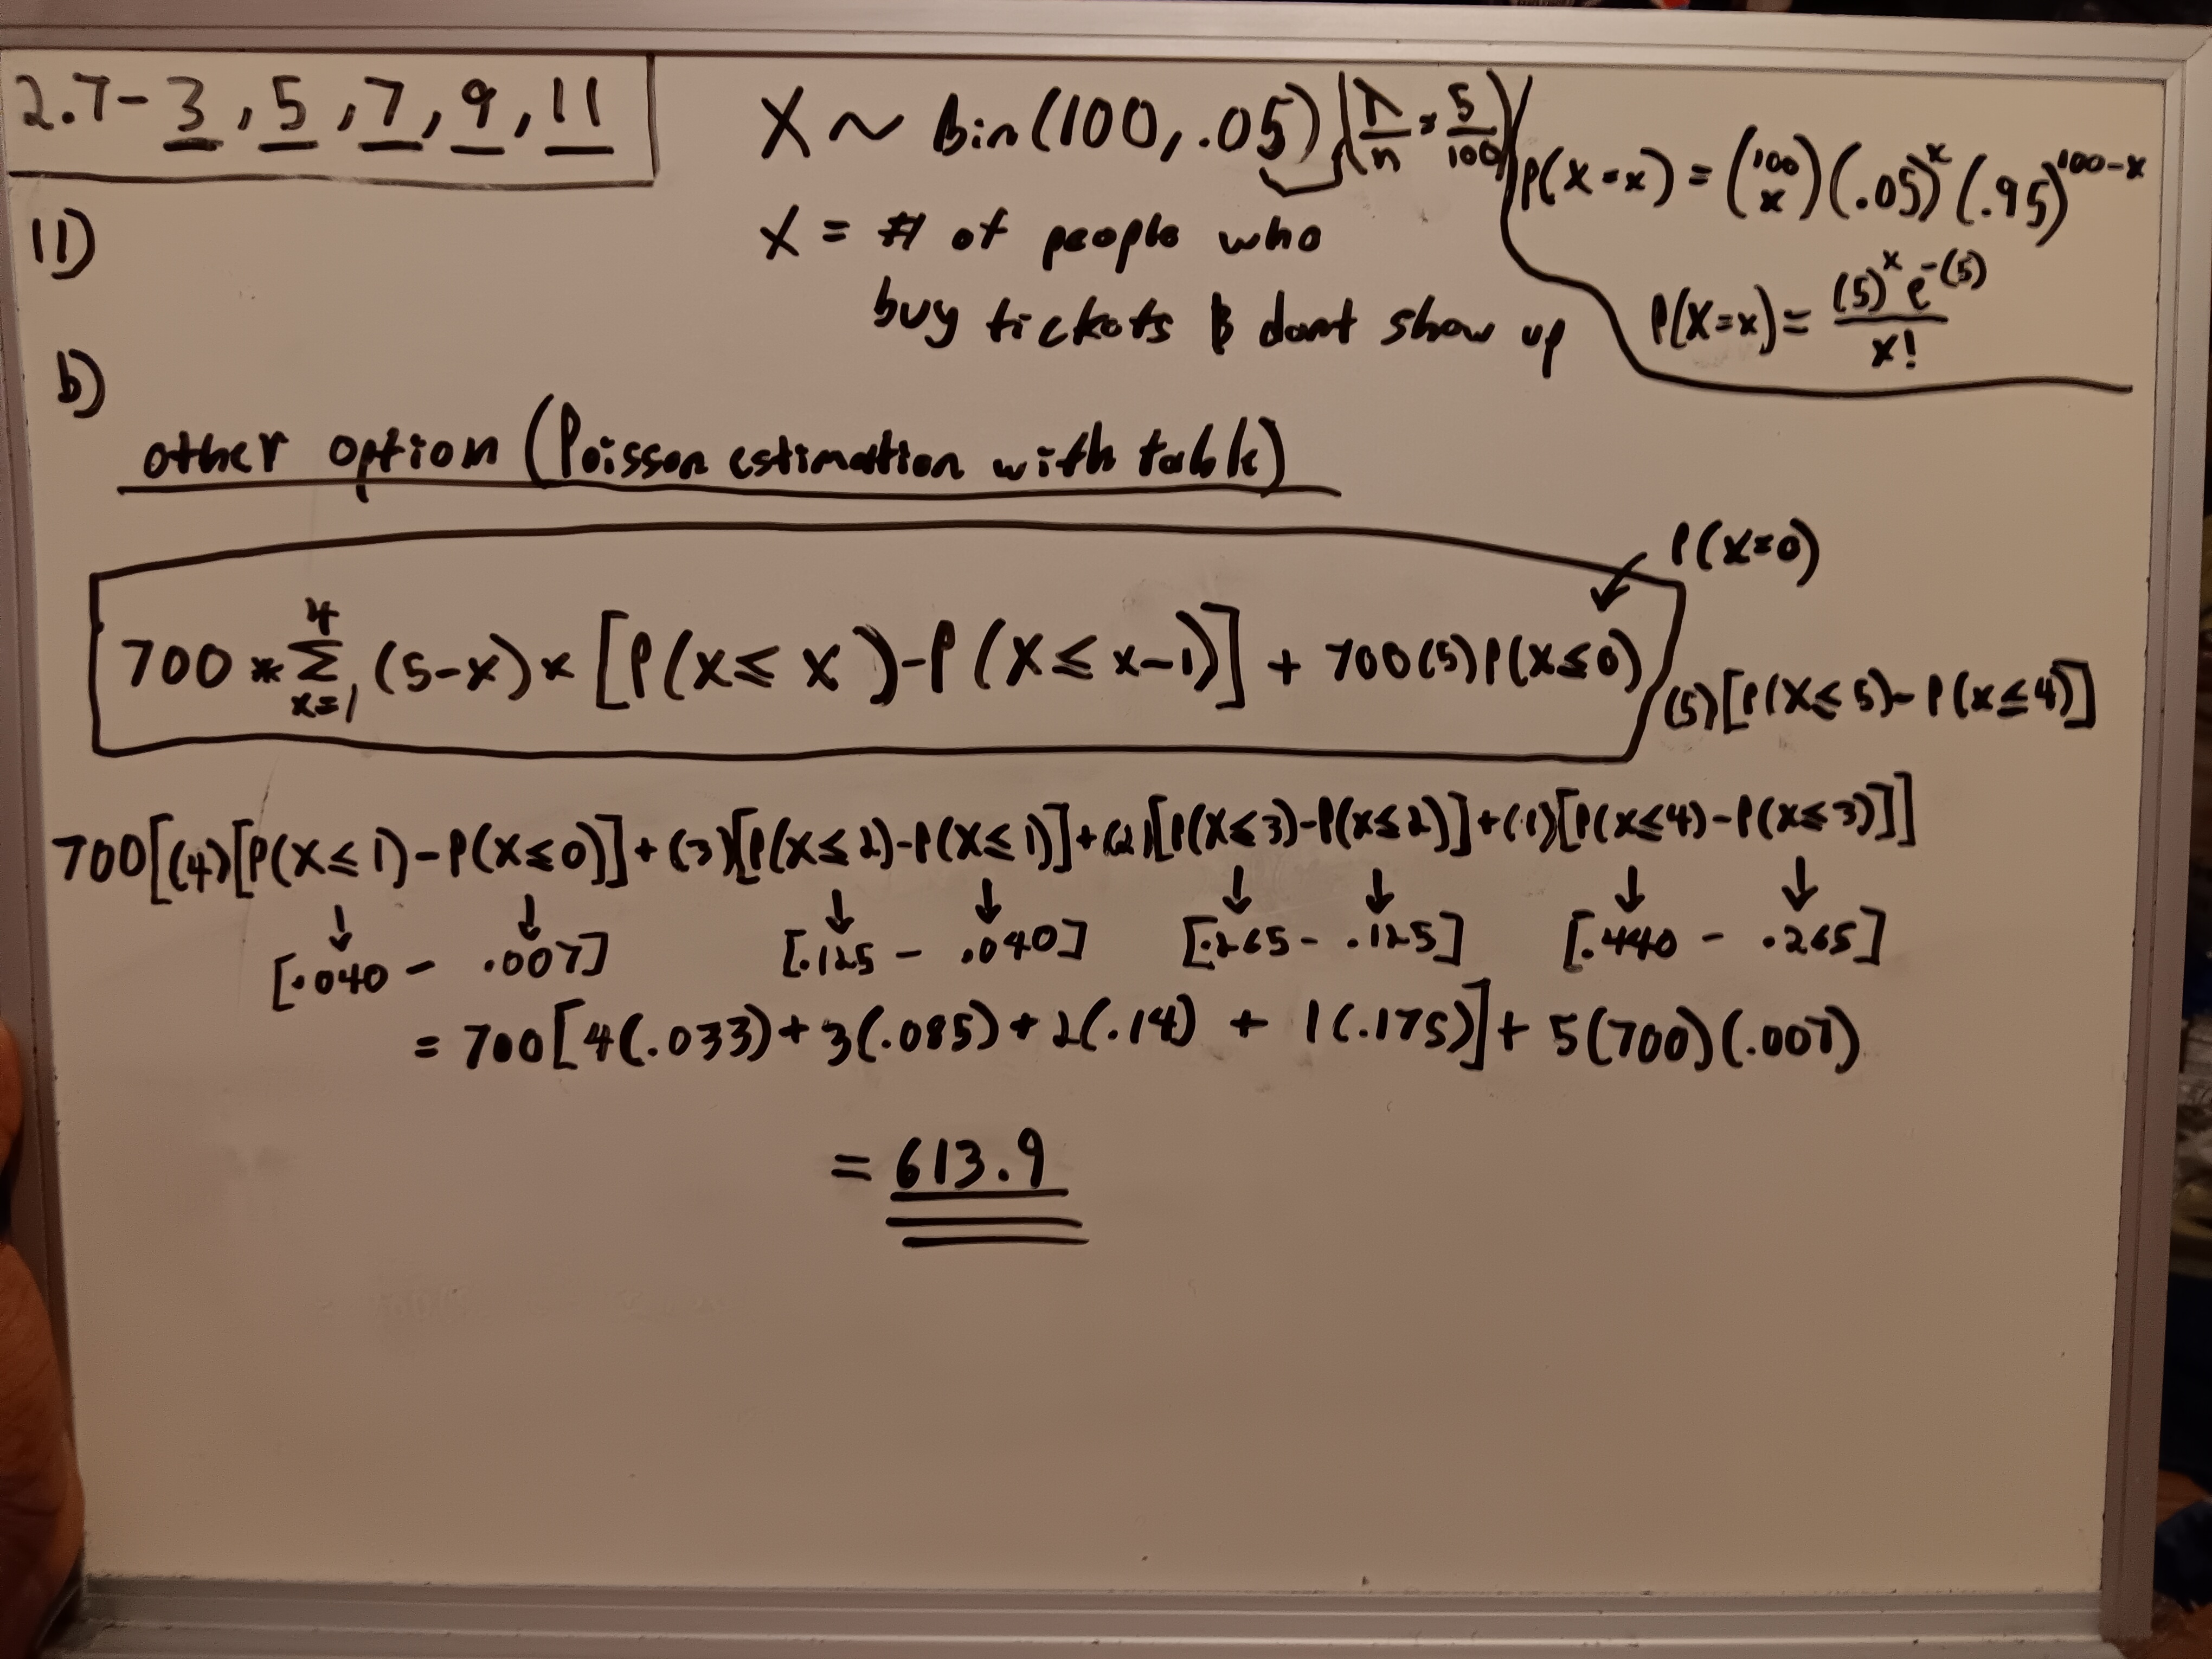 2.7- 3, 5, 7, 9, 11
X ~ bin(100, .05) (λ/n = 5/100)
P(X=x) = (100 x)(.05)^x (.95)^100-x
11)
X = # of people who
buy tickets & dont show up
P(X=x) = (5)^x e^-(5) / x!
b)
other option (Poisson estimation with table)
P(X=0)
700 * Σ_{x=1}^{4} (5-x) * [P(X≤x)-P(X≤x-1)] + 700(5)P(X≤0)
(5)[P(X≤5)-P(X≤4)]
700[(4)[P(X≤1)-P(X≤0)]+(3)[P(X≤2)-P(X≤1)]+(2)[P(X≤3)-P(X≤2)]+(1)[P(X≤4)-P(X≤3)]]
↓ ↓ ↓ ↓ ↓ ↓ ↓ ↓
[.040 - .007] [.125 - .040] [.265 - .125] [.440 - .265]
= 700[4(.033)+3(.085)+2(.14) + 1(.175)]+ 5(700)(.007)
= 613.9